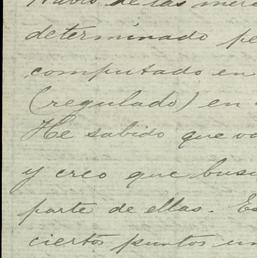 de las
determinado
computado en
(regulado) en
He sabido que
y creo que
parte de ellas.
ciertos puntos